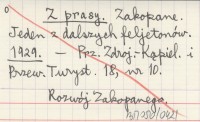 Z prasy. Zakopane.
Jeden z dalszych feljetonów.
1929. — Prz. Zdroj.-Kąpiel. i
Przew. Turyst. 18, nr 10.
Rozwój Zakopanego.